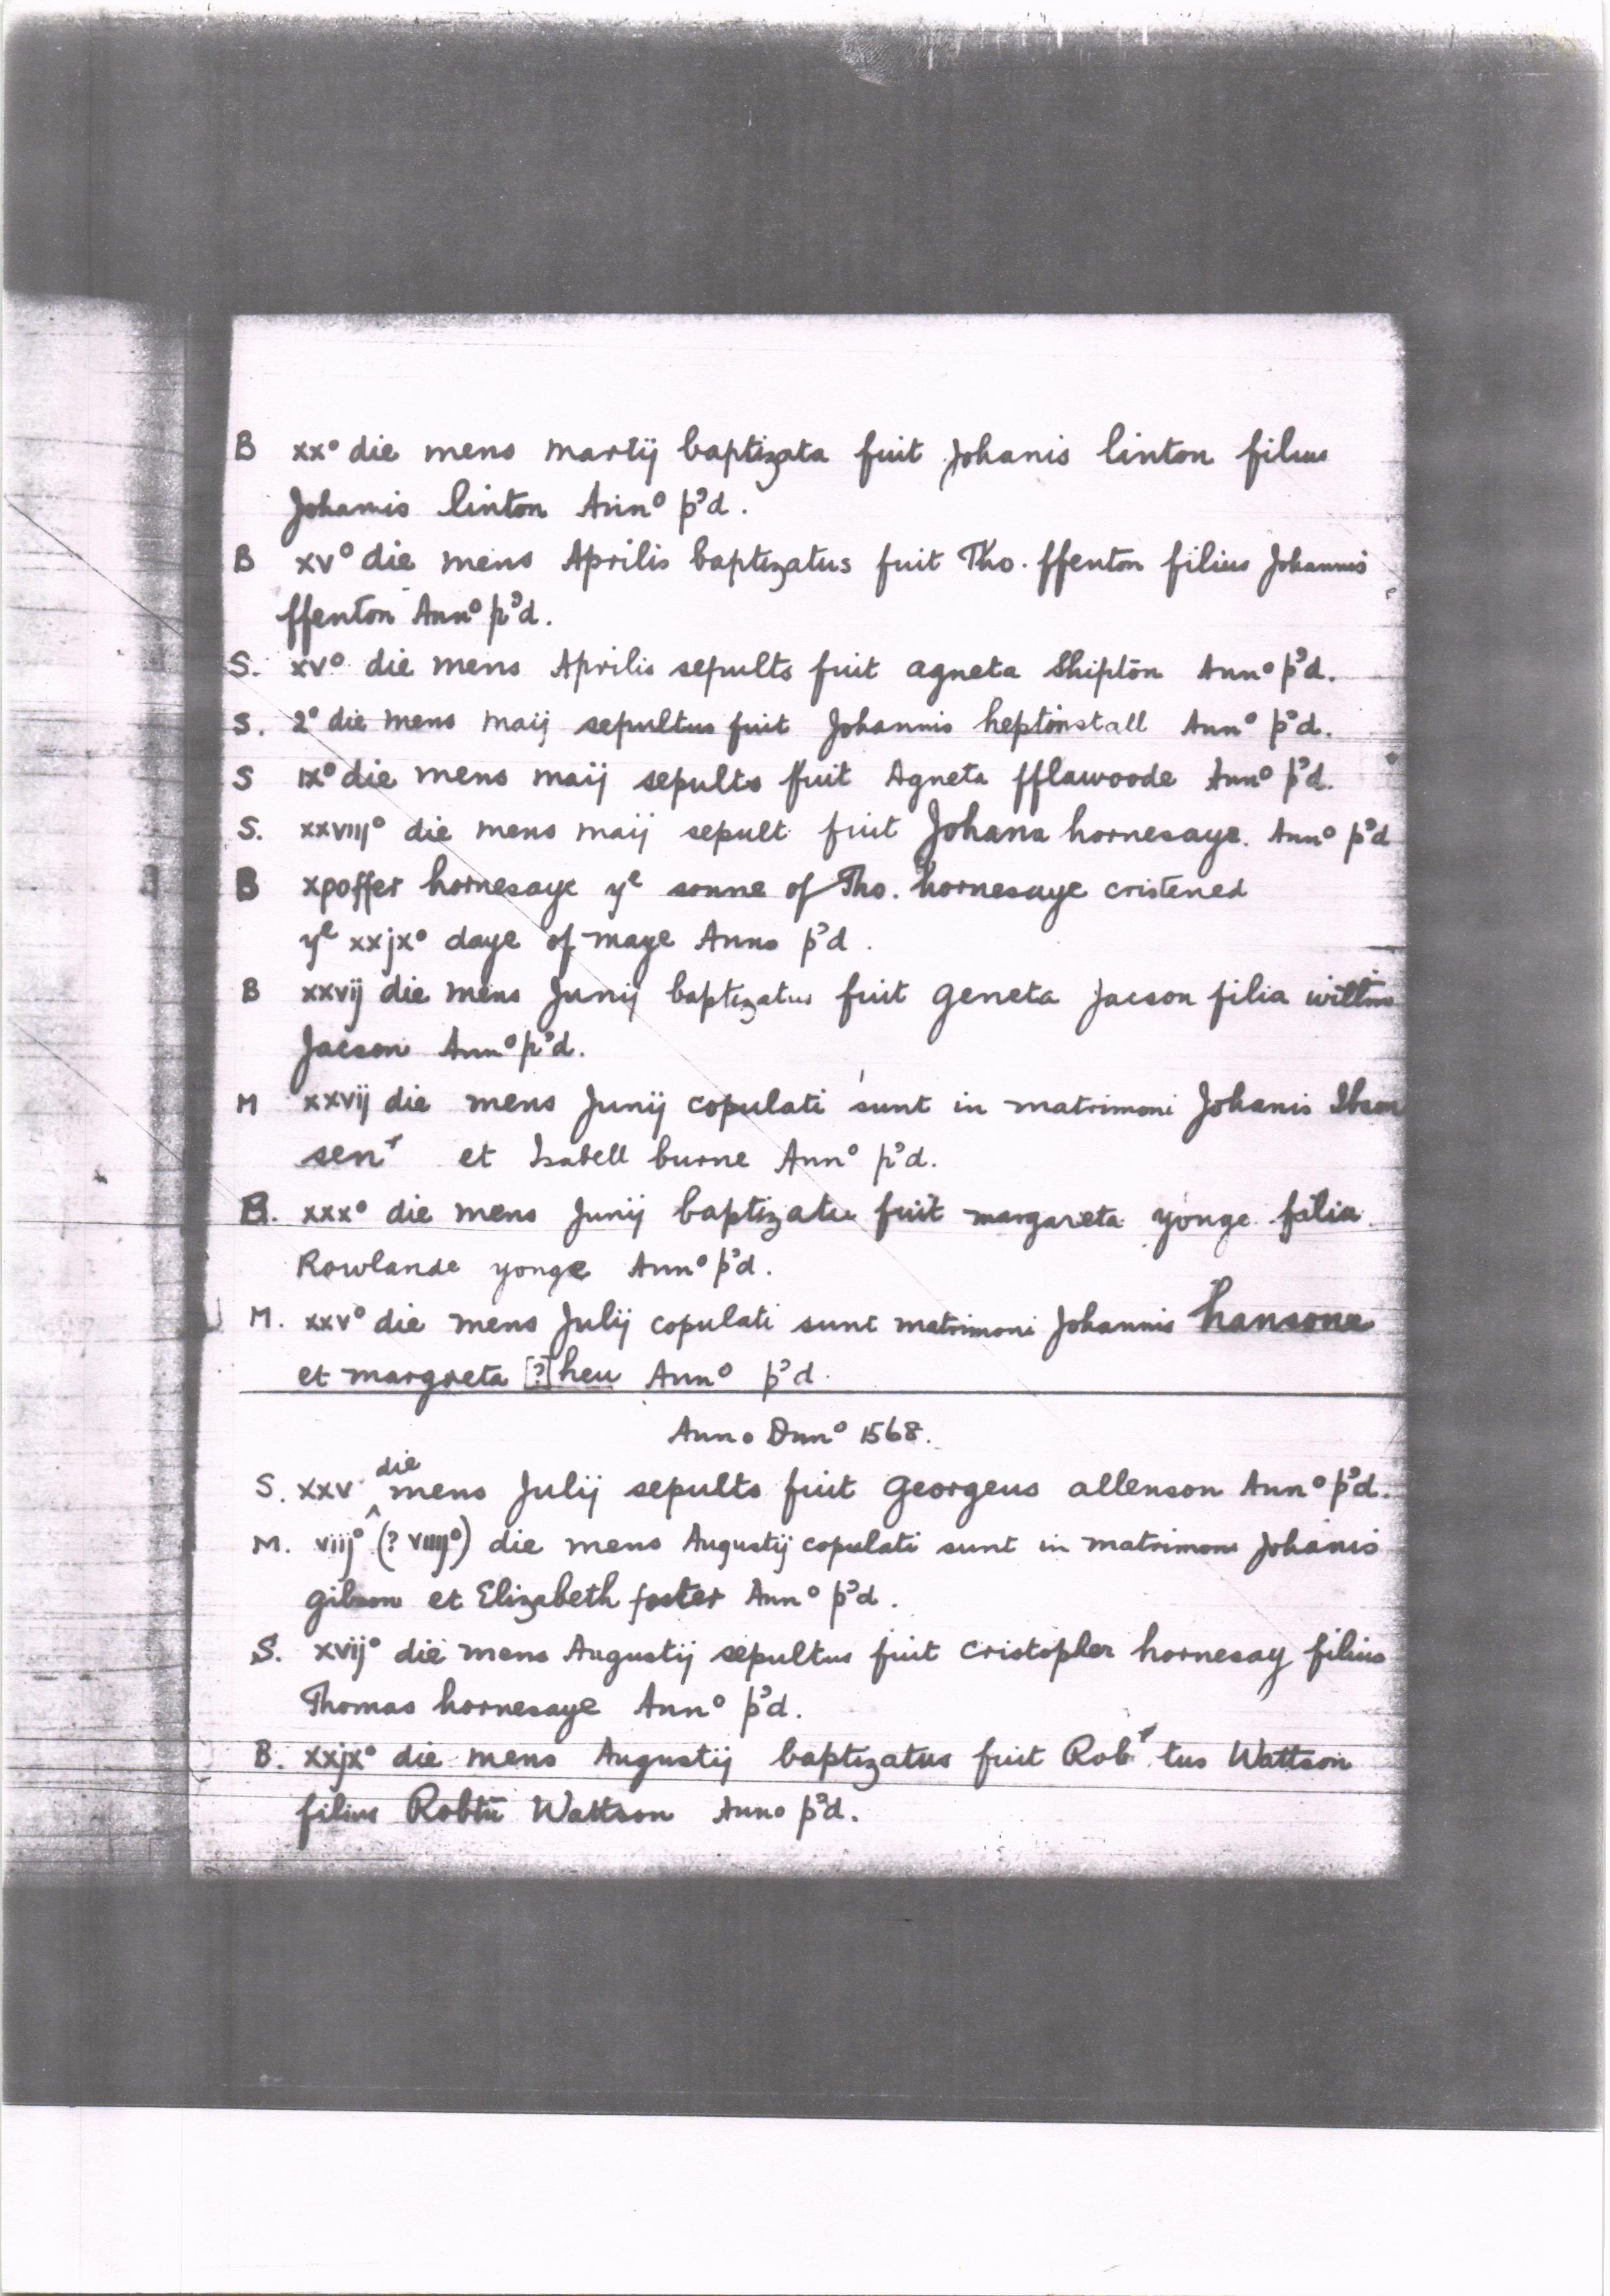 B xxº die mens martij baptizata fuit Johanis linton filius
Johannis linton Annº p'd.
B xvº die mens Aprilis baptizatus fuit Tho. ffenton filius Johannis
ffenton Annº p'd.
S. xvº die mens Aprilis sepults fuit agneta Shiptōn Annº p'd.
S. 2º die mens maij sepultus fuit Johannis heptonstall Annº p'd.
S ixº die mens maij sepults fuit Agneta fflawoode Annº p'd.
S. xxviijº die mens maij sepult fuit Johana hornesaye. Annº p'd
B xpoffer hornesaye yᵉ sonne of Tho. hornesaye cristened
yᵉ xxjxº daye of maye Anno p'd.
B xxvij die mens Junij baptizatus fuit Geneta Jacson filia willm
Jacson Annº p'd.
M xxvij die mens Junij copulati sunt in matrimoni Johanis Ibson
senʳ et Isabell burne Annº p'd.
B. xxxº die mens Junij baptizatu fuit margareta yonge filia
Rowlande yonge Annº p'd.
M. xxvº die mens Julij copulati sunt matrimoni Johannis hansone
et margreta [?]heu Annº p'd.
Anno Dnnº 1568.
S. xxv die mens Julij sepults fuit Georgeus allenson Annº p'd.
M. viijº (? viiijº) die mens Augustij copulati sunt in matrimoni Johanis
gibson et Elizabeth foster Annº p'd.
S. xvijº die mens Augustij sepultus fuit cristopher hornesay filius
Thomas hornesaye Annº p'd.
B. xxjxº die mens Augustij baptizatus fuit Robʳtus Wattson
filius Robtū Wattson Anno p'd.